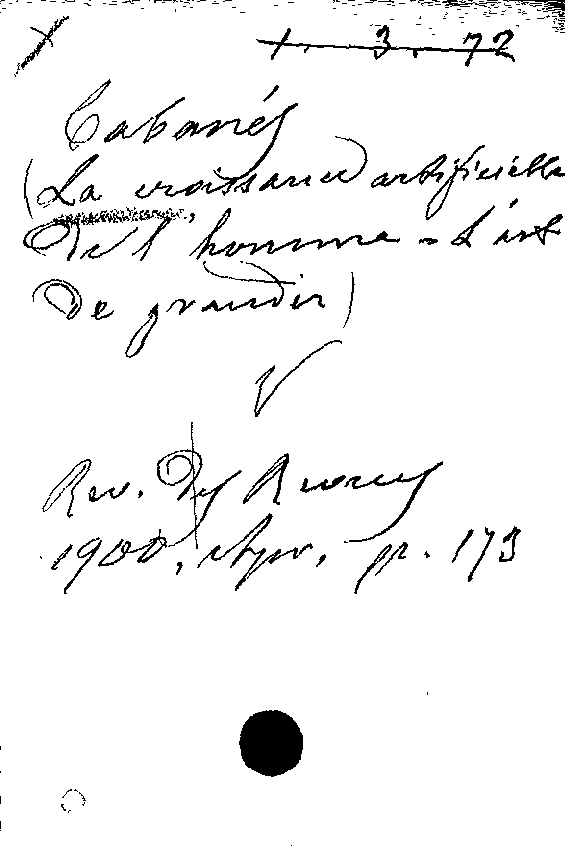 1. 3. 72
Cabanés
(La croissance artificielle
de l'homme - L'art
de grandir)
V
Rev. des Revues
1900, Apr. p. 173